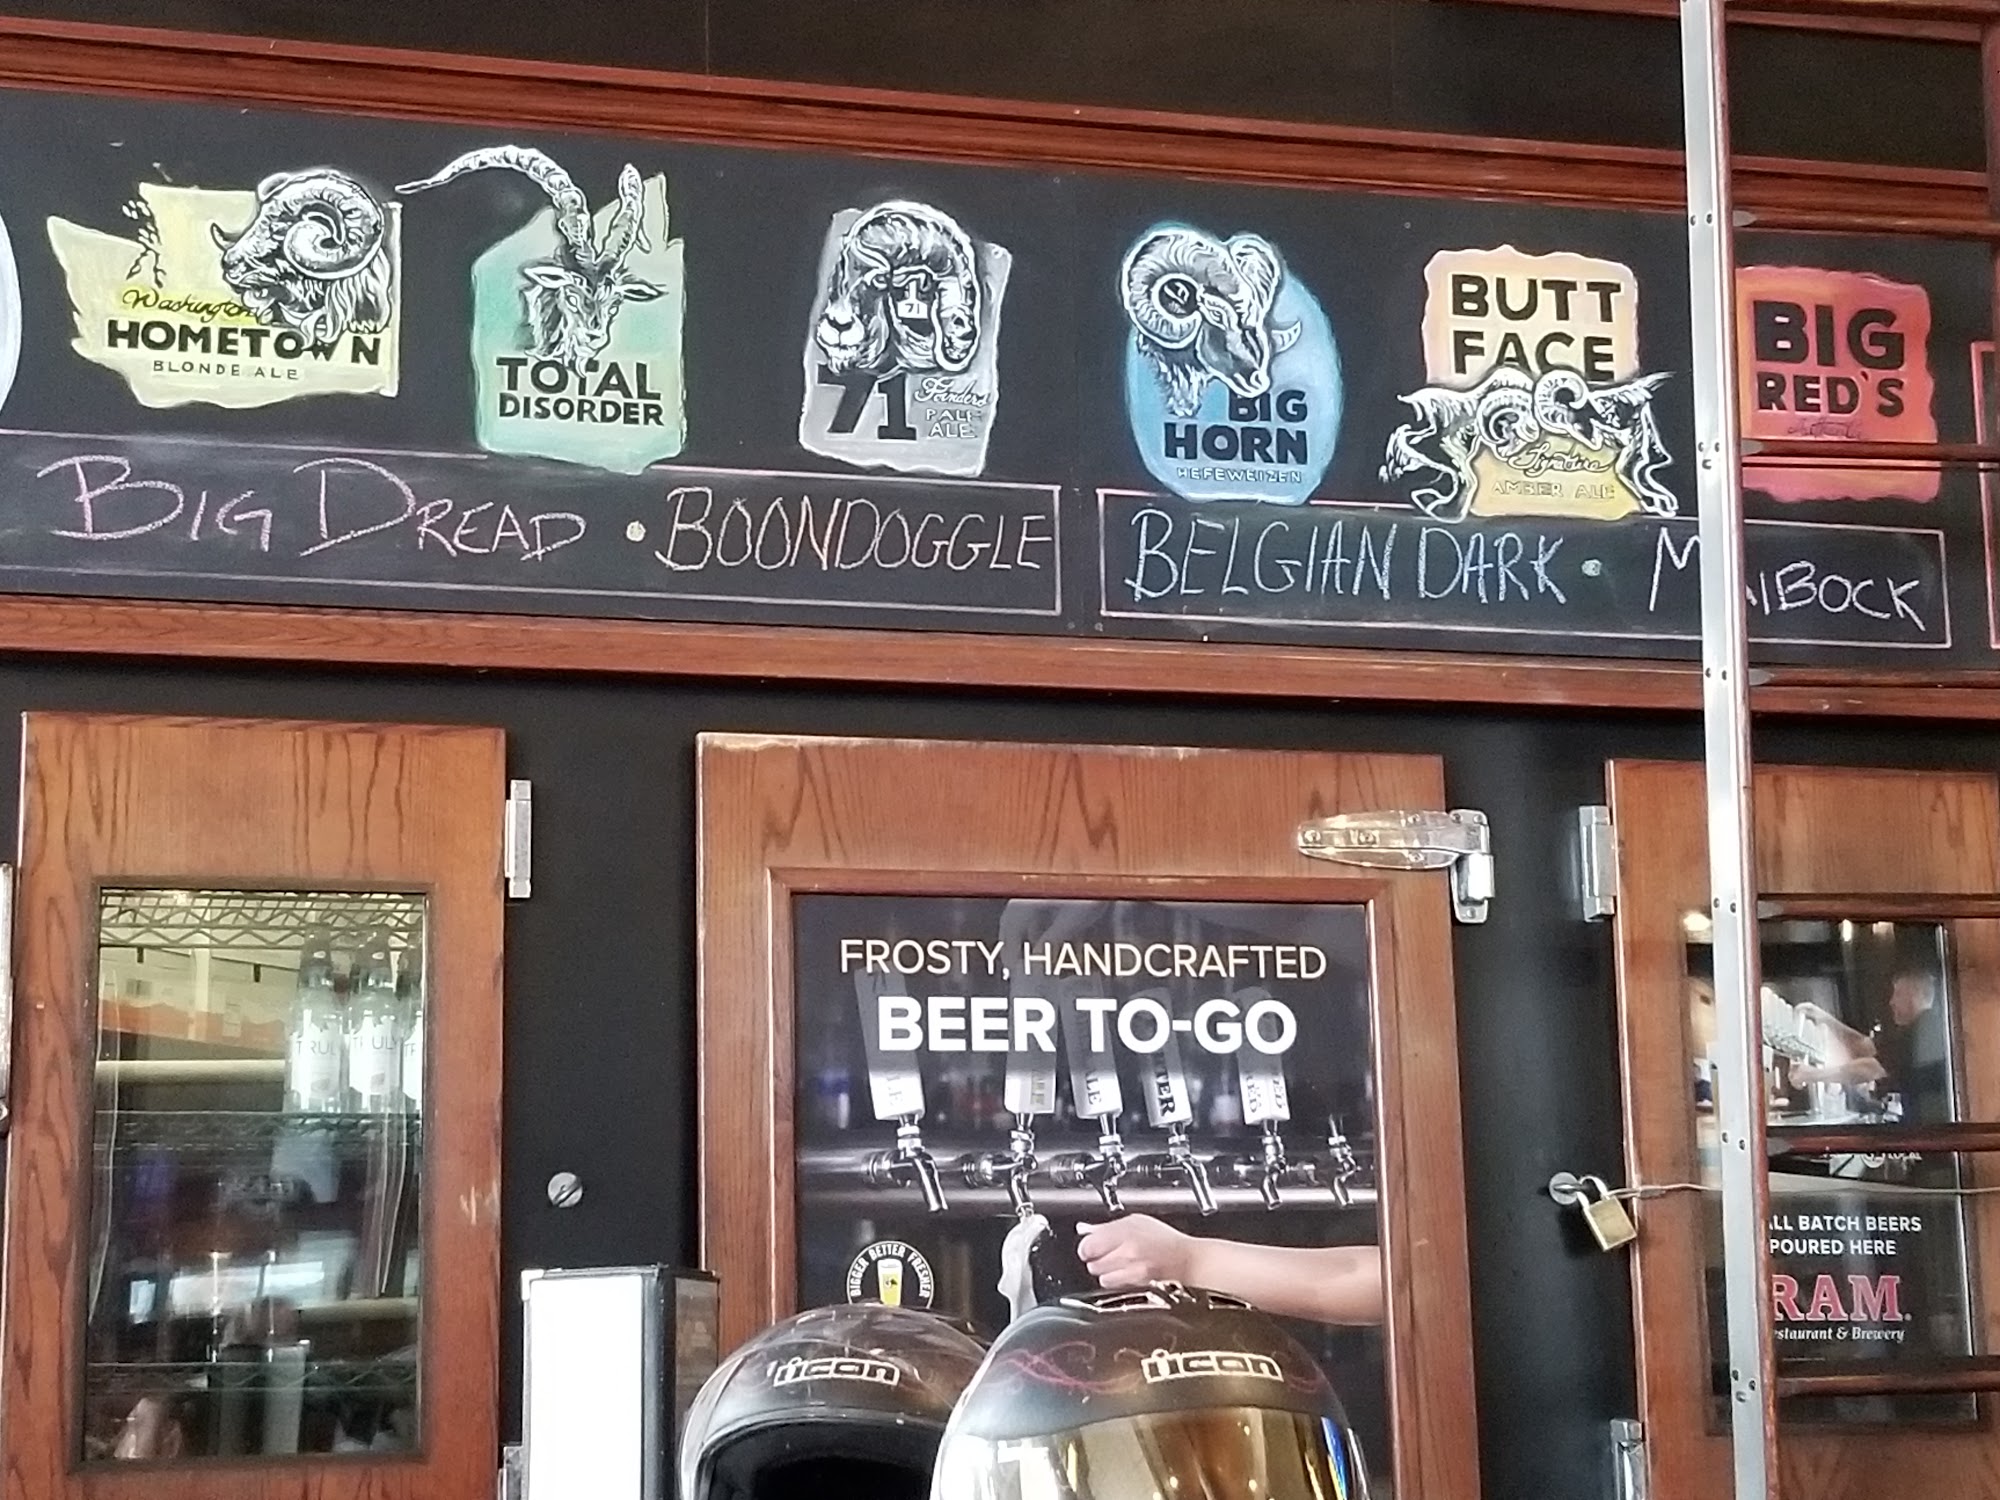 Washington
HOMETOWN
BLONDE ALE
TOTAL
DISORDER
71
71 Founders
PALE
ALE
BIG
HORN
HEFEWEIZEN
BUTT
FACE
Signature
AMBER ALE
BIG
RED'S
BIG DREAD • BOONDOGGLE
BELGIAN DARK • MAIBOCK
FROSTY, HANDCRAFTED
BEER TO-GO
ALE
ALE
RED
BIGGER BETTER FRESHER
TRULY
icon
icon
BATCH BEERS
POURED HERE
RAM
& Brewery